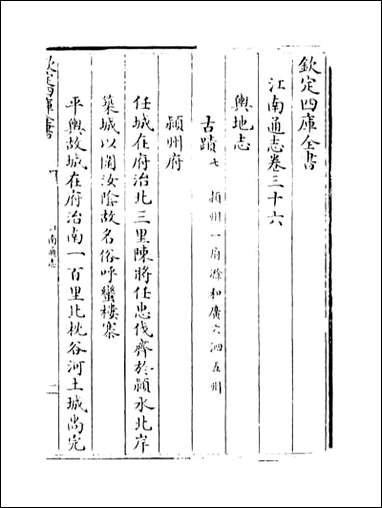 欽定四庫全書
江南通志卷三十六
輿地志
古蹟七 潁州一府滁和廣六泗五州
潁州府
任城在府治北三里陳將任忠伐齊於潁水北岸
築城以闚汝陰故名俗呼蠻樓寨
平輿故城在府治南一百里北枕谷河土城尚完
欽定四庫全書
江南通志